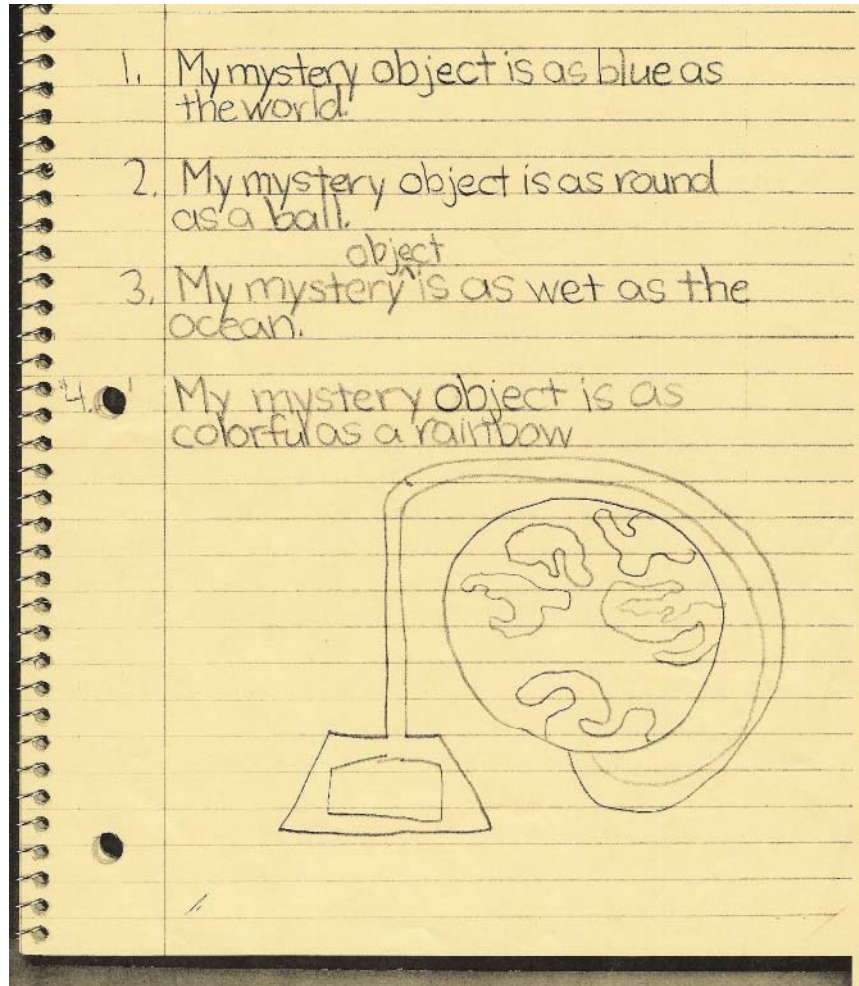 1. My mystery object is as blue as
the world.
2. My mystery object is as round
as a ball.
object
3. My mystery ^ is as wet as the
ocean.
4. My mystery object is as
colorful as a rainbow